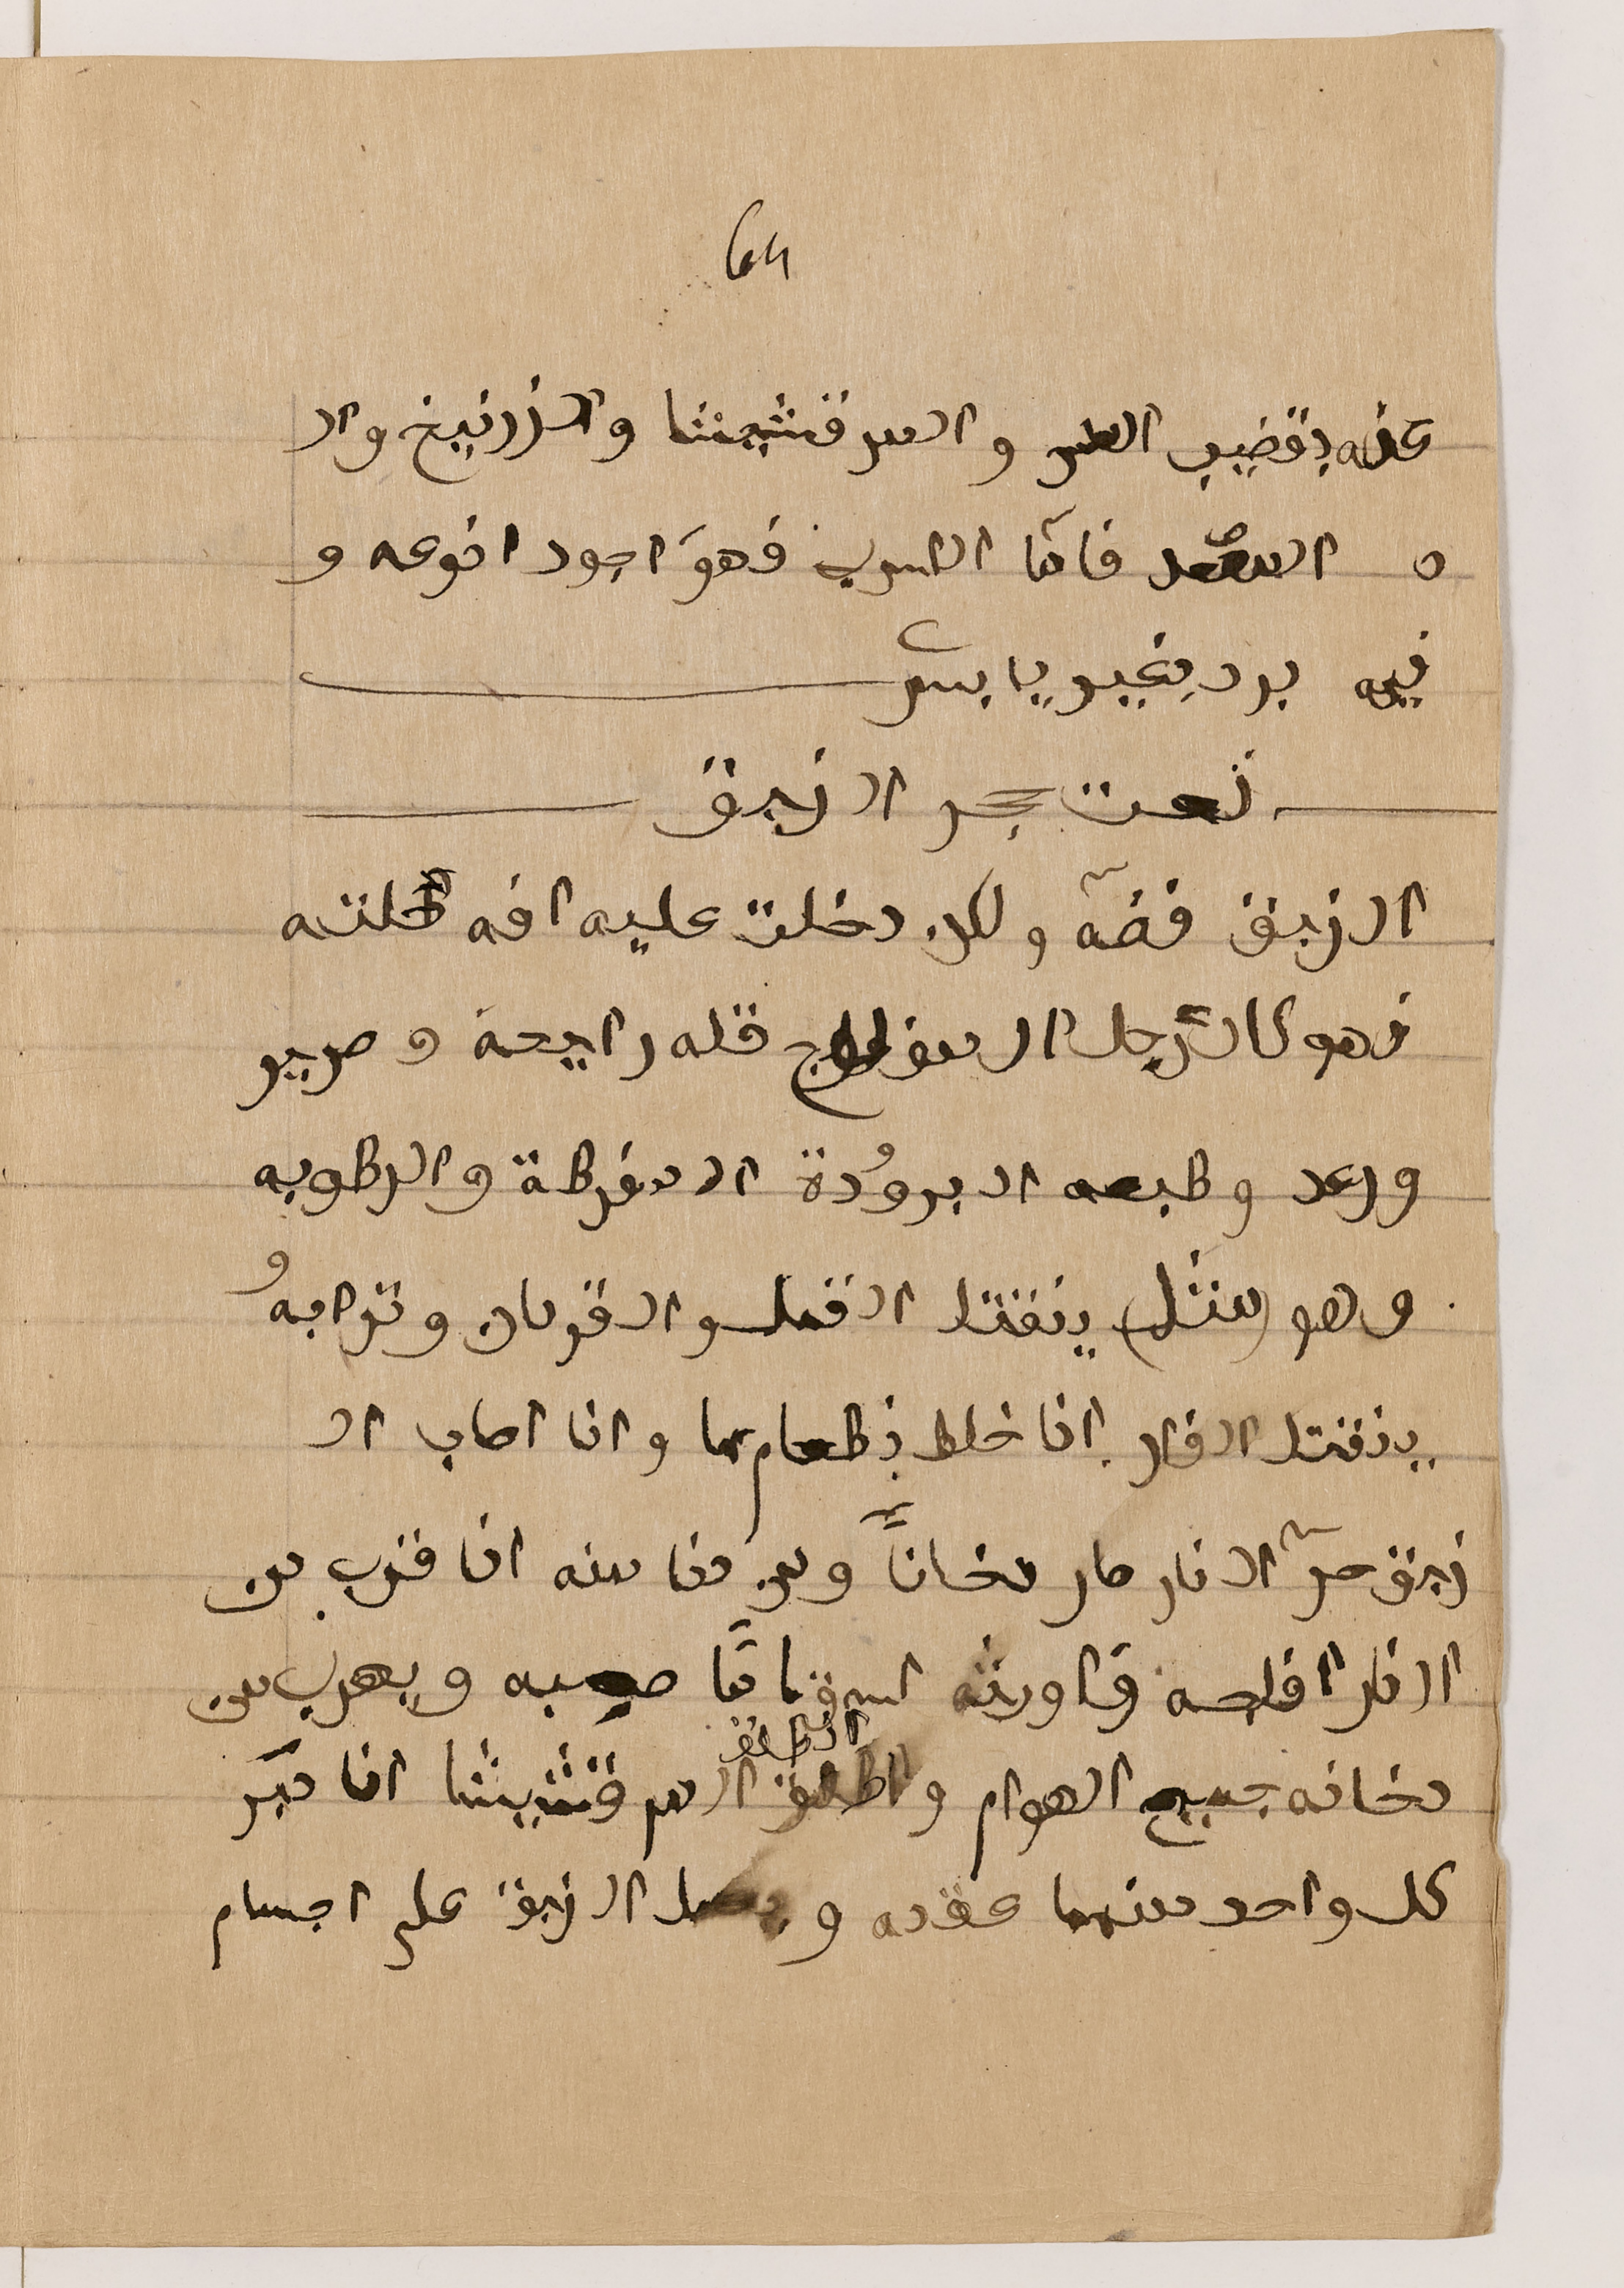 قله بقضيب المر والمرقشيثا والزرنيخ وال
فاما السرب فهو اجود انوعه و
فيه برد بغير يابس
نعت حجر الزيبق
الزيبق فضه ولكن دخلت عليه افه
فهو كالرجل المفلوج فله رايحة وصرير
ورعد وطبعه البرودة المفرطة والرطوبه
وهو (مثل) ينفتل القمل والقردان وترابه
ينفتل الفار اذا خلط بطعام ما واذا اصاب ال
زيبق حر النار صار دخاناً ومن دنا منه اذا قرب من
النار افلجه واورثه اسقاما صعبه ويهرب من
دخانه جميع الهوام والطلق المرقشيثا اذا دبر
كل واحد منهما عقده و الزيبق على اجسام